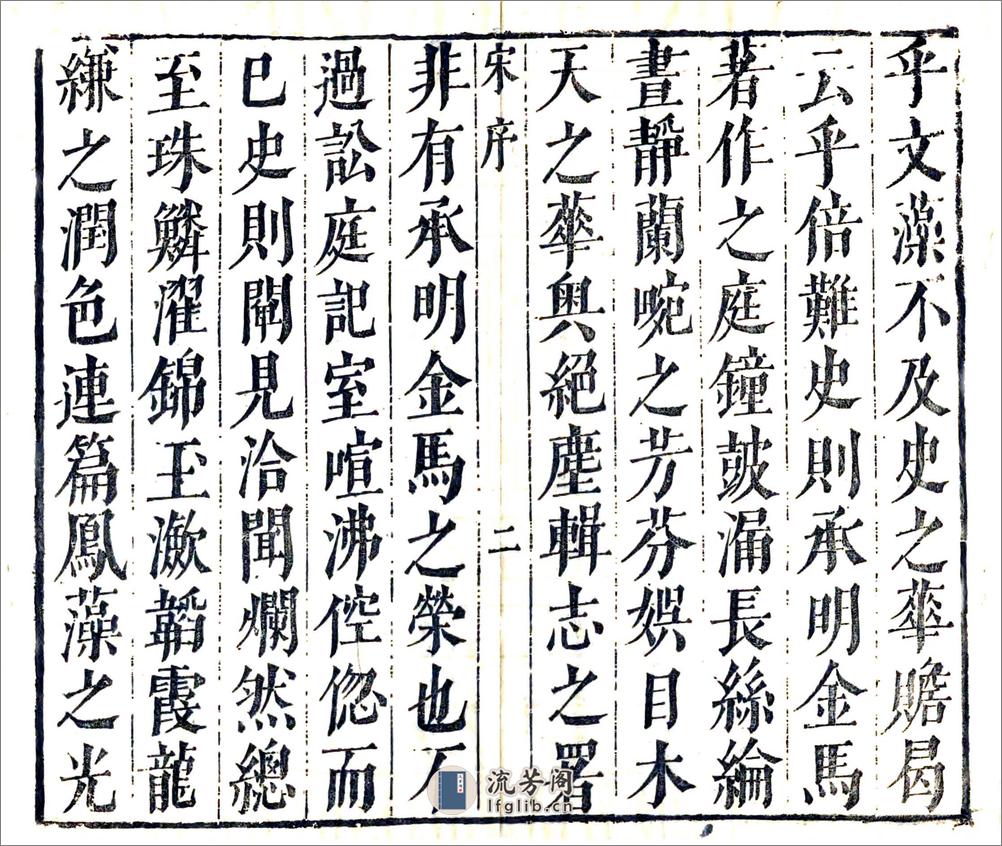 乎文藻不及史之華贍曷
云乎倍難史則承明金馬
著作之庭鐘皷漏長絲綸
晝靜蘭畹之芳芬娯目木
天之華奥絕塵輯志之署
宋序 二
非有承明金馬之榮也不
過訟庭記室喧沸倥偬而
已史則闡見洽聞爛然總
至珠鱗濯錦玉潄韜霞龍
縑之潤色連篇鳳藻之光
流芳阁
lfglib.cn